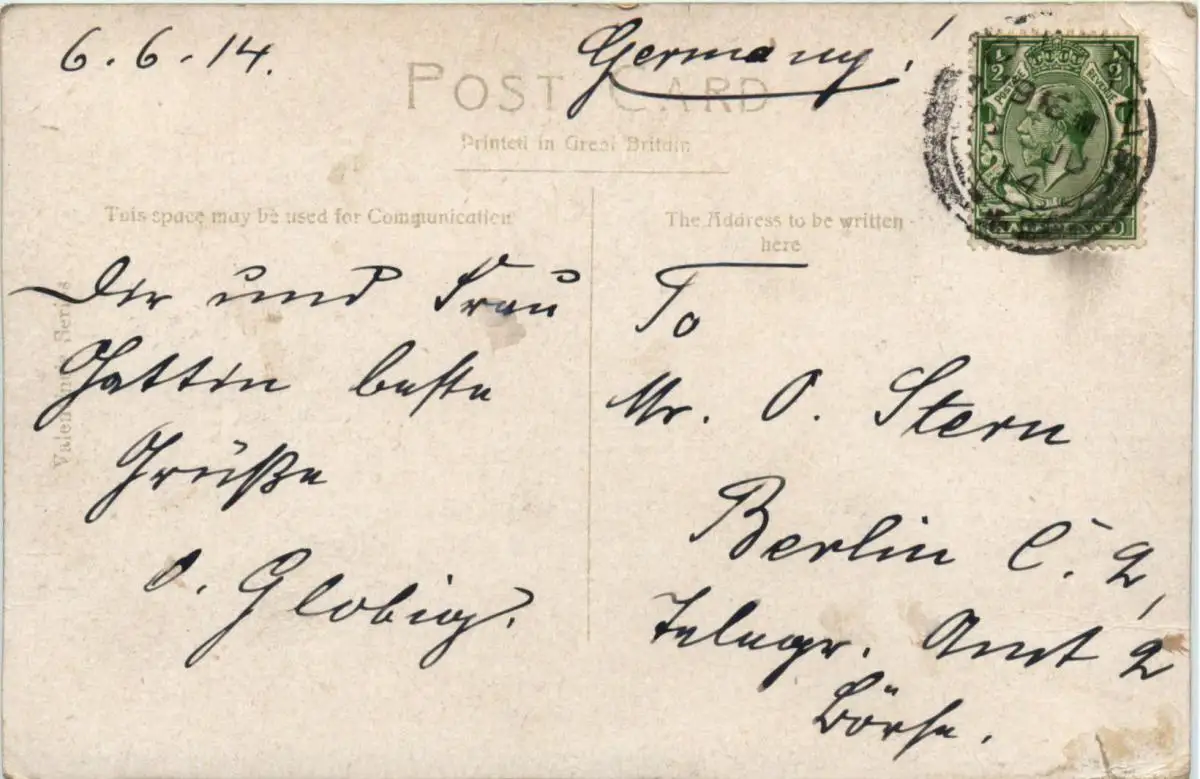 6.6.14.
Germany!
POST CARD
Printed in Great Britain
This space may be used for Communication
Dir und Frau
Gattin beste
Grüße
O. Globig.
Valentine's Series
The Address to be written
here
To
Mr. O. Stern
Berlin C. 2,
Telegr. Amt 2
Börse.
½
½
14